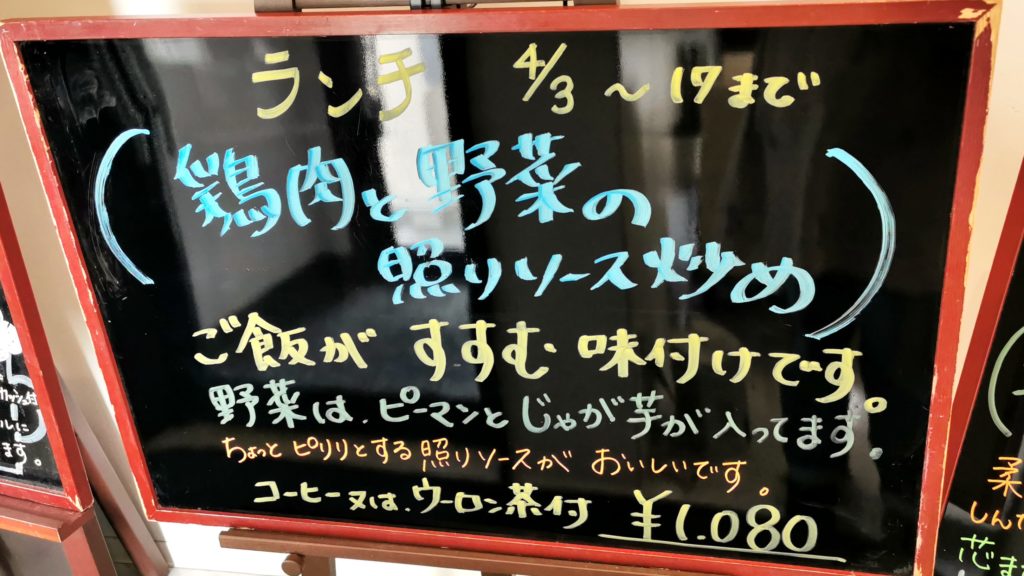 ランチ 4/3 ～ 17まで
(鶏肉と野菜の
照りソース炒め)
ご飯が すすむ 味付けです。
野菜は、ピーマンと じゃが芋が 入ってます。
ちょっと ピリリとする 照りソースが おいしいです。
コーヒー又は、ウーロン茶付 ¥1.080
ルに
ます。
柔
しんで
芯ま